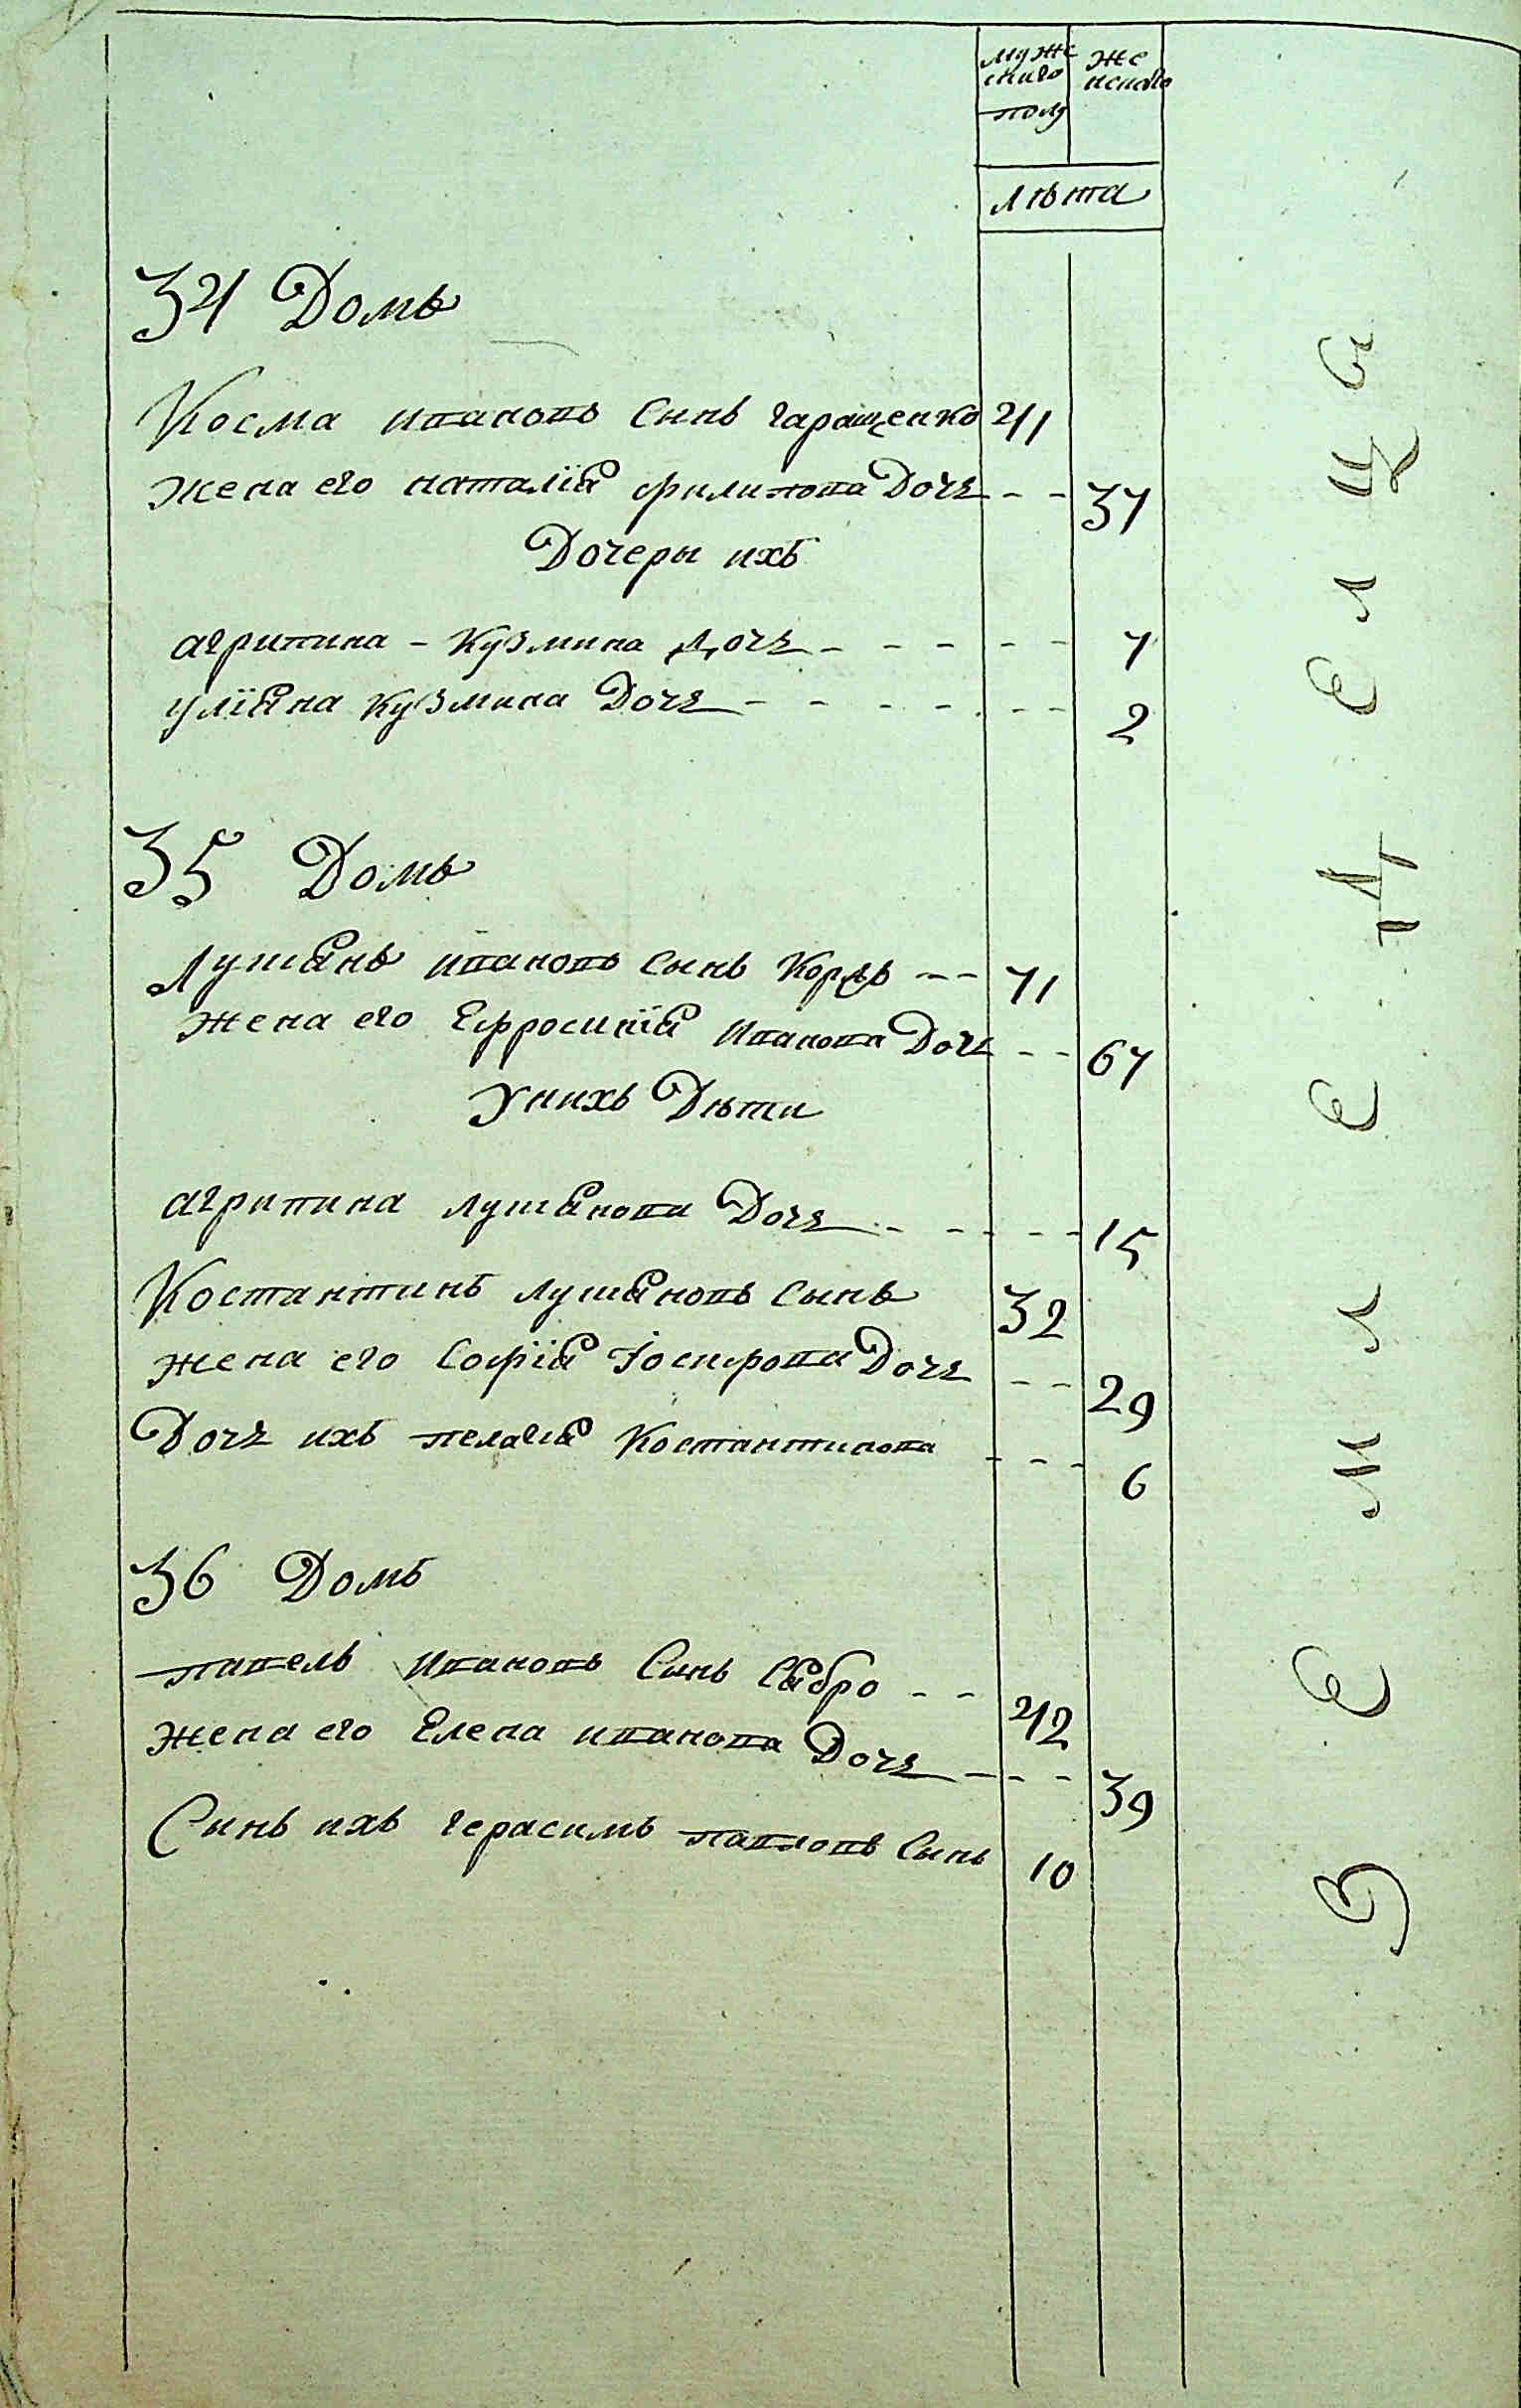 муже
скиго
полу
же
нскаго
лѣта
34 Домъ
Косма ивановъ Синъ гаращенко 41
жена его наталїя филипова Дочъ - - 37
Дочеры ихъ
агрипина - Кузмина Дочъ - - - - - 7
улїяна Кузмина Дочъ - - - - - - 2
35 Домъ
Лушянъ ивановъ сынъ -- 71
жена его Ефросинїя Иванова Дочъ - - 67
Унихъ Дѣти
агрипина лушянова Дочъ - - - - 15
Костантинъ лушяновъ сынъ 32
жена его Софїя Іосифова Дочъ - - 29
Дочъ ихъ пелагїя Костантинова - - - 6
36 Домъ
павелъ Ивановъ Синъ Сябро - - 42
жена его Елена иванова Дочъ - - - 39
Синъ ихъ герасимъ павловъ Сынъ 10
земледелцы